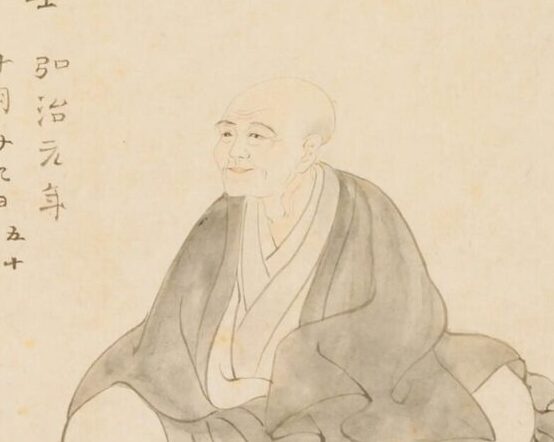 弘治元年
十月廿九日五十